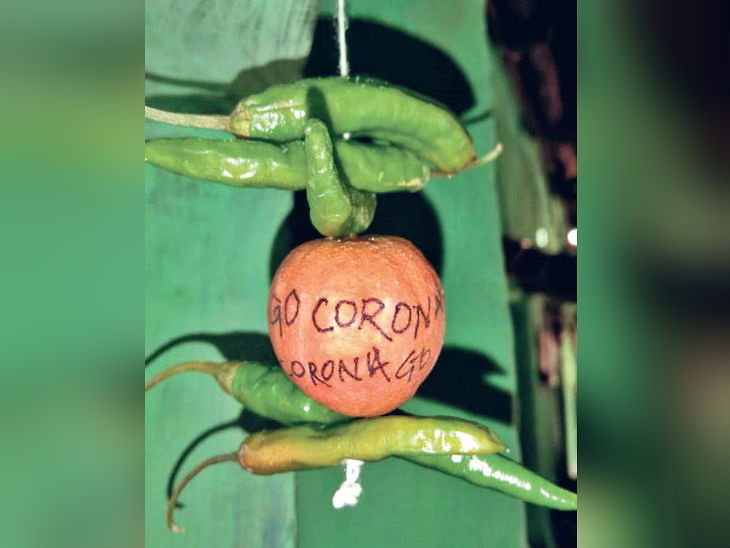 GO CORONA
CORONA GO